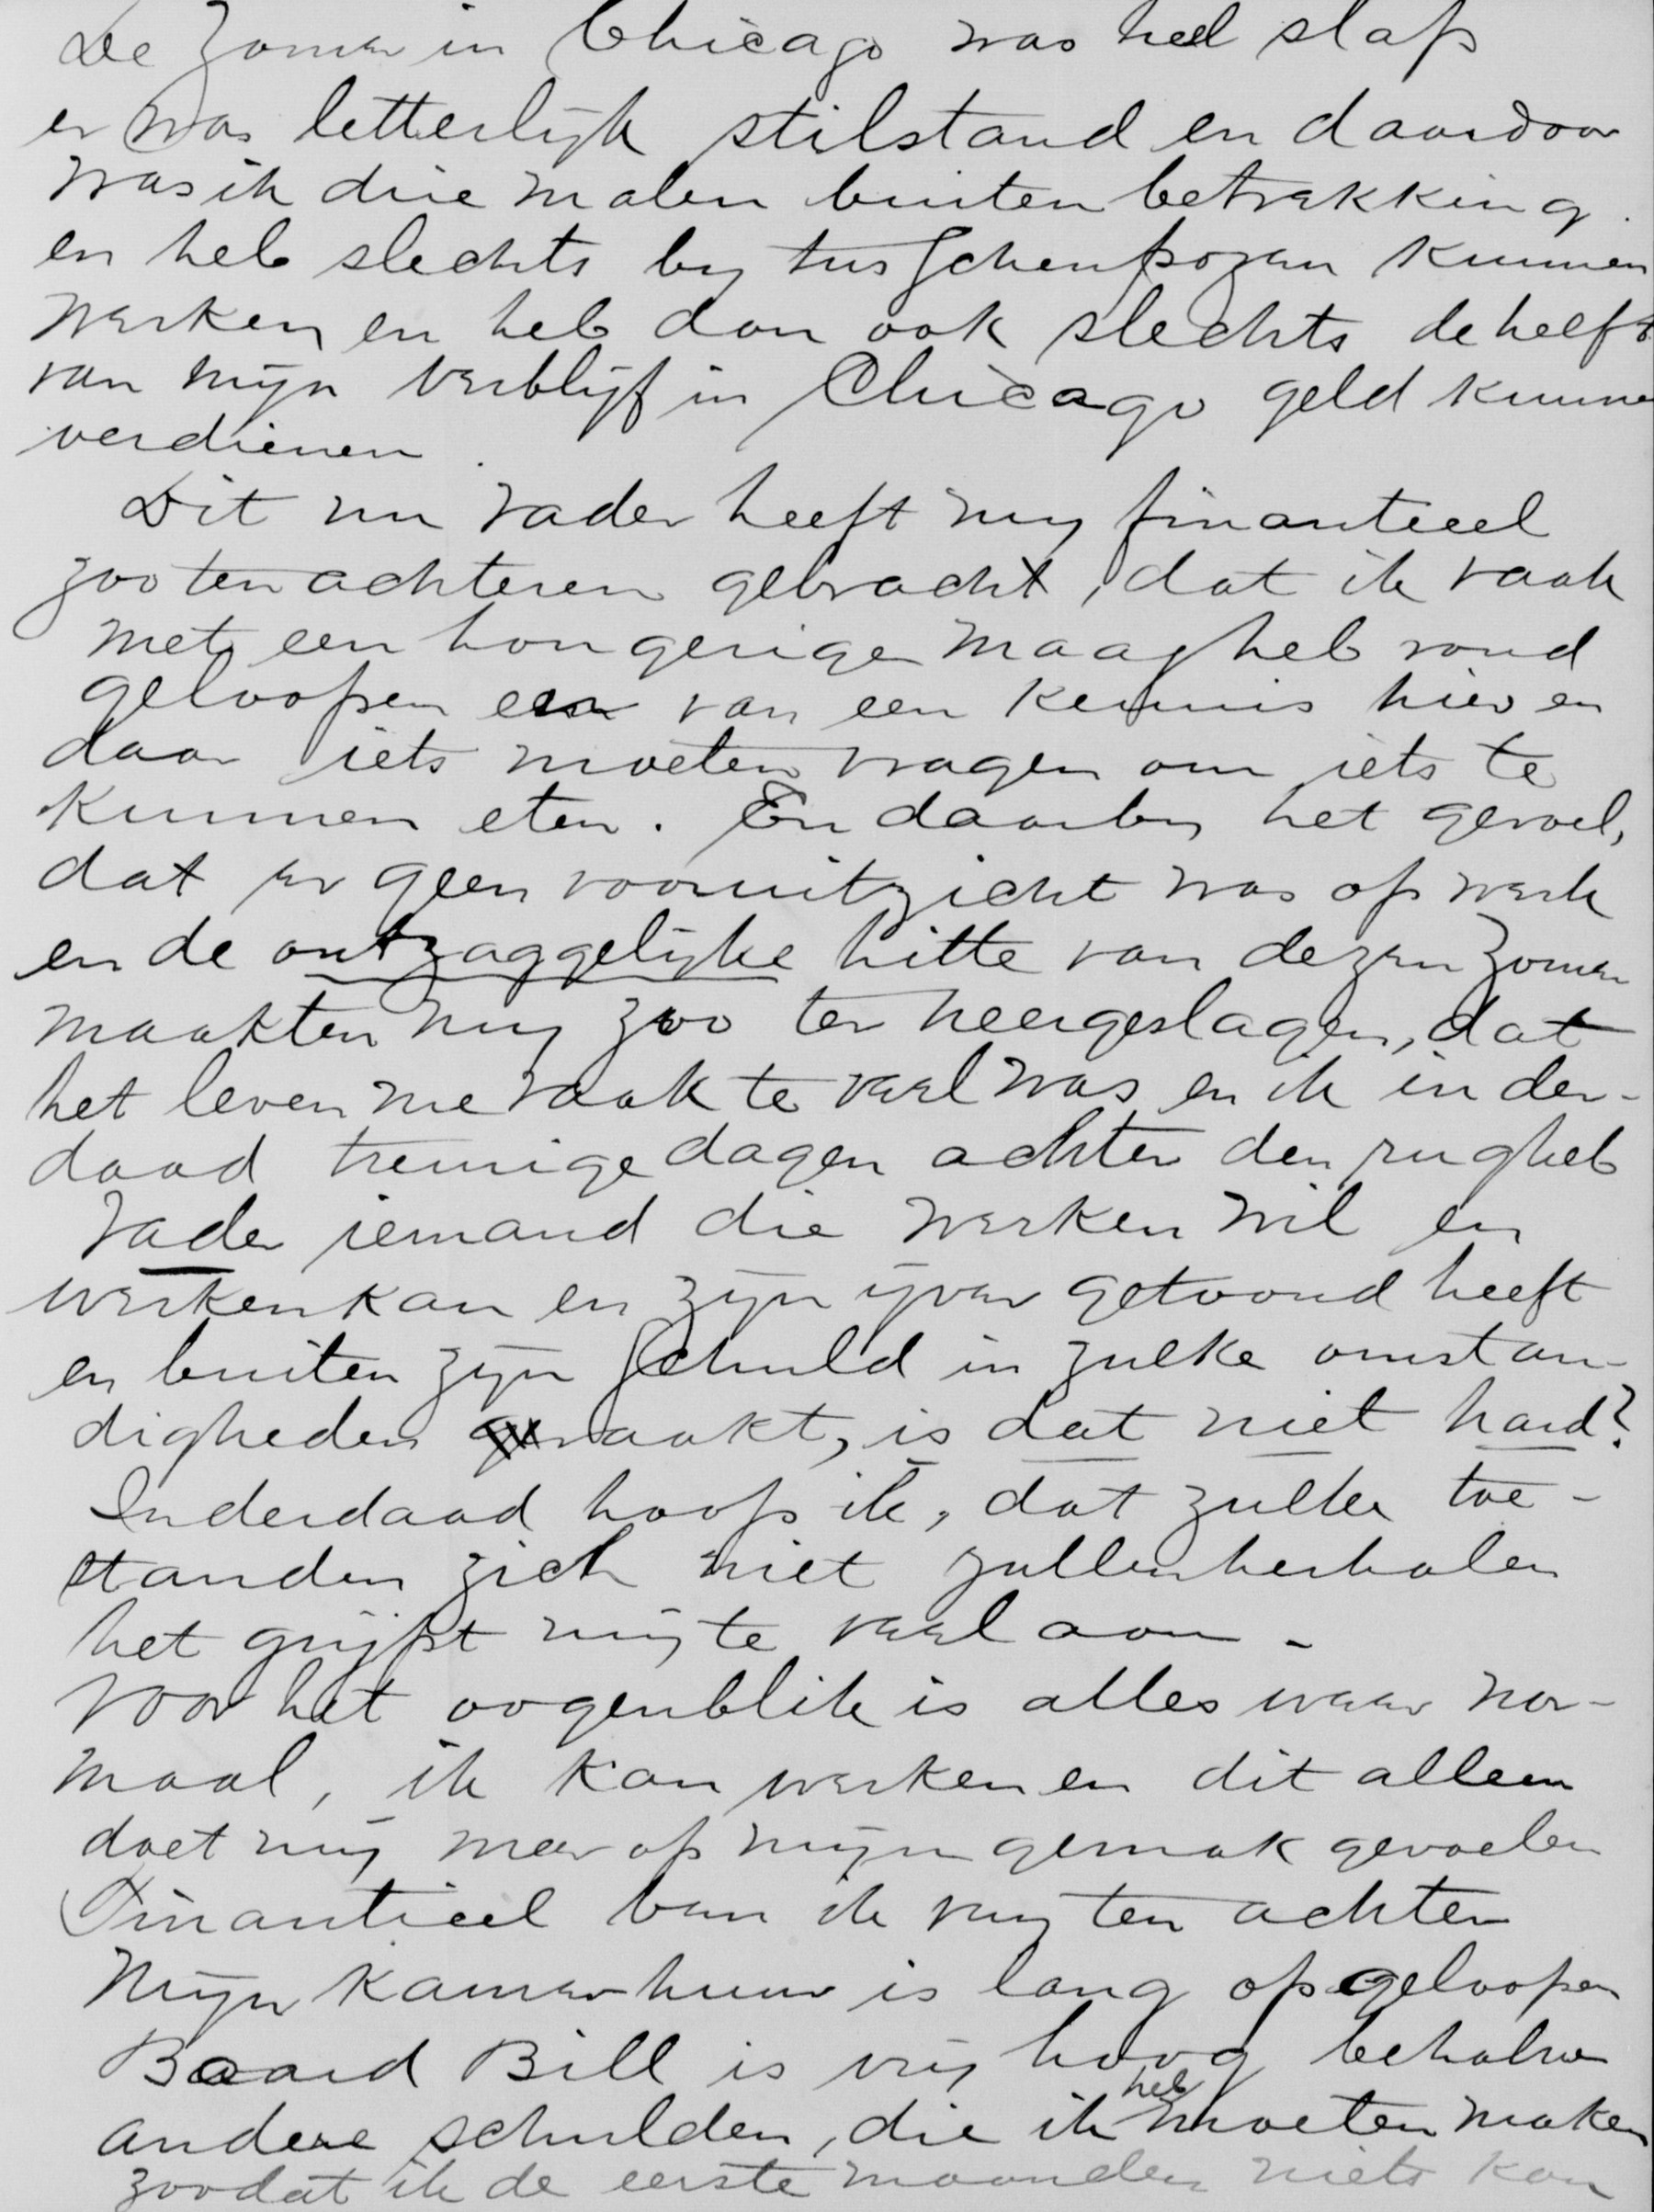 De Zomer in Chicago was heel slap
er was letterlijk stilstand en daardoor
was ik drie malen buiten betrekking.
en heb slechts by tusschenpozen kunnen
werken en heb dan ook slechts de helft
van mijn verblijf in Chicago geld kunnen
verdienen.
Dit nu Vader heeft my finantieel
zoo ten achteren gebracht, dat ik vaak
met een hongerige maag heb rond
geloopen en van een kennis hier en
daar iets moeten vragen om iets te
kunnen eten. En daarby het gevoel,
dat er geen vooruitzicht was op werk
en de ontzaggelijke hitte van dezen Zomer
maakten my zoo ter neergeslagen, dat
het leven me vaak te veel was en ik in der-
daad treurige dagen achter den rug heb
Vader iemand die werken wil en
werken kan en zijn ijver getoond heeft
en buiten zijn schuld in zulke omstan-
digheden raakt, is dat niet hard?
Inderdaad hoop ik, dat zulke toe-
standen zich niet zullen herhalen
het grijpt mij te veel aan.
Voor het oogenblik is alles weer nor-
maal, ik kan werken en dit alleen
doet mij meer op mijn gemak gevoelen
Finantieel ben ik ver ten achter
Mijn kamerhuur is lang opgeloopen
Board Bill is vrij hoog behalve
andere schulden, die ik heb moeten maken
zoodat ik de eerste maanden niets kan